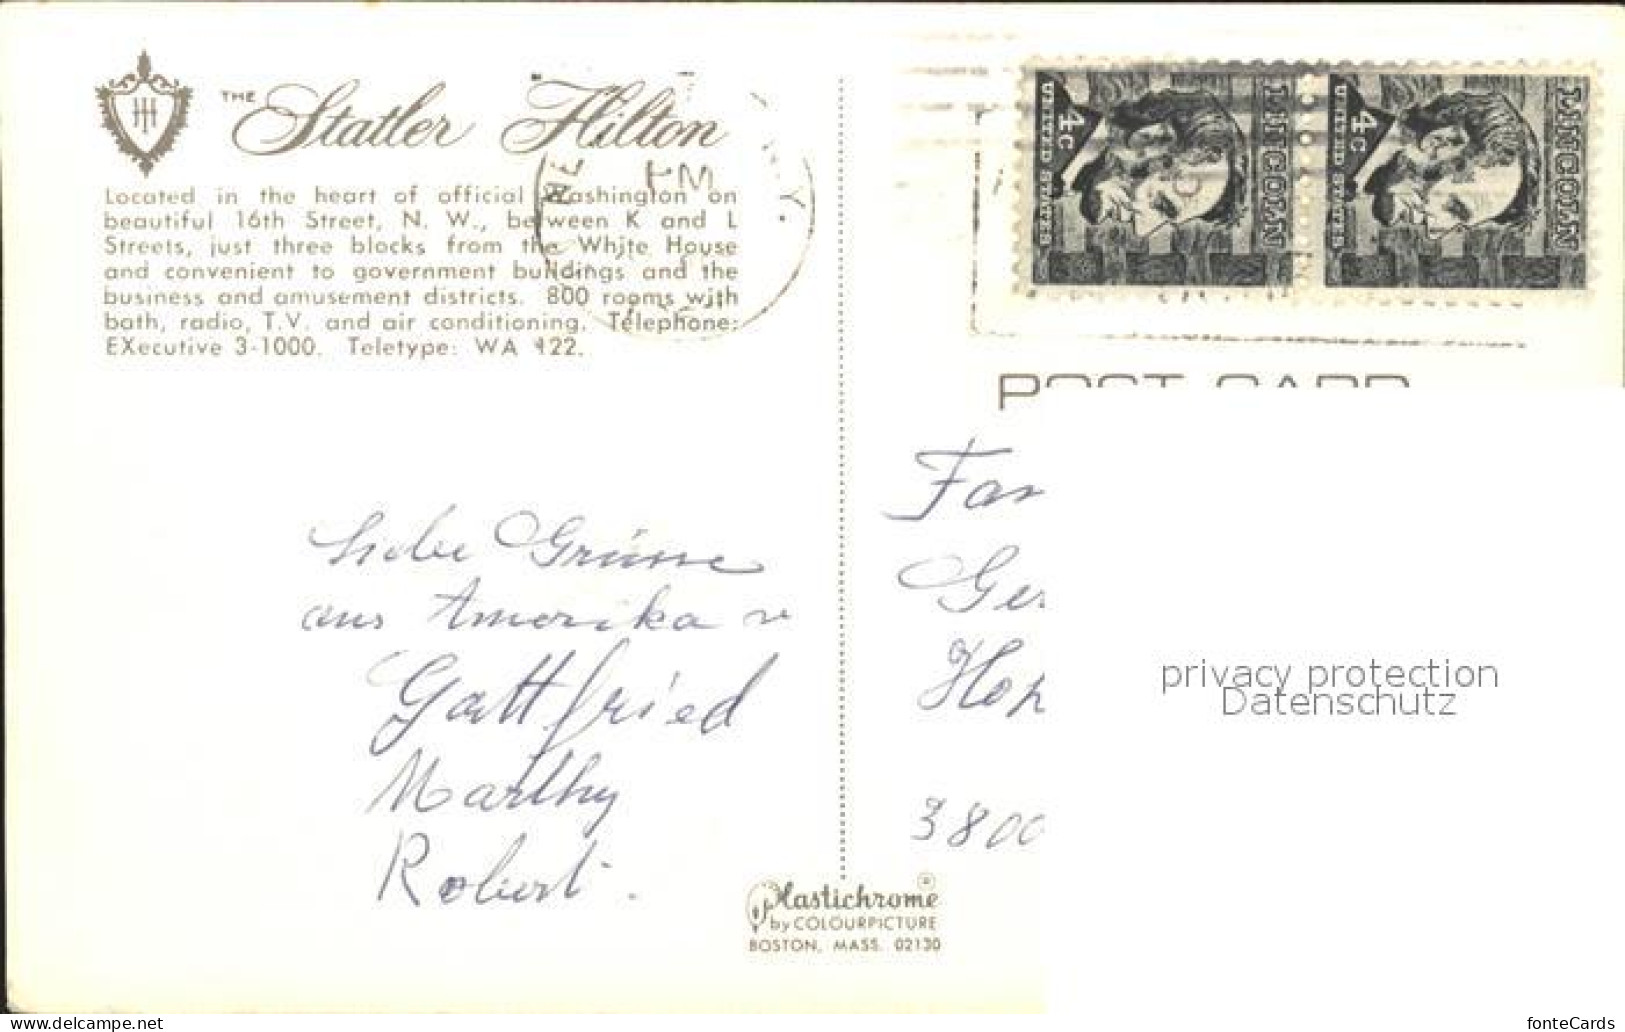 THE Statler Hilton
Located in the heart of official Washington on
beautiful 16th Street, N. W., between K and L
Streets, just three blocks from the White House
and convenient to government buildings and the
business and amusement districts. 800 rooms with
bath, radio, T.V. and air conditioning. Telephone:
EXecutive 3-1000. Teletype: WA 422.
Liebe Grüsse
aus Amerika
Gottfried
Marthy
Robert.
Plastichrome®
by COLOURPICTURE
BOSTON, MASS. 02130
PM
N.Y.
LINCOLN
4c
UNITED STATES
LINCOLN
4c
UNITED STATES
POST CARD
Fam
Ger
Hop
3800
privacy protection
Datenschutz
www.delcampe.net
fonteCards